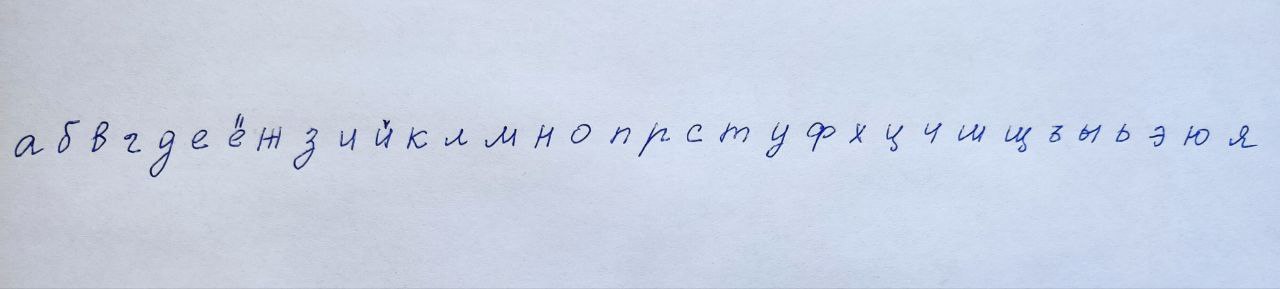 а б в г д е ё ж з и й к л м н о п р с т у ф х ц ч ш щ ъ ы ь э ю я